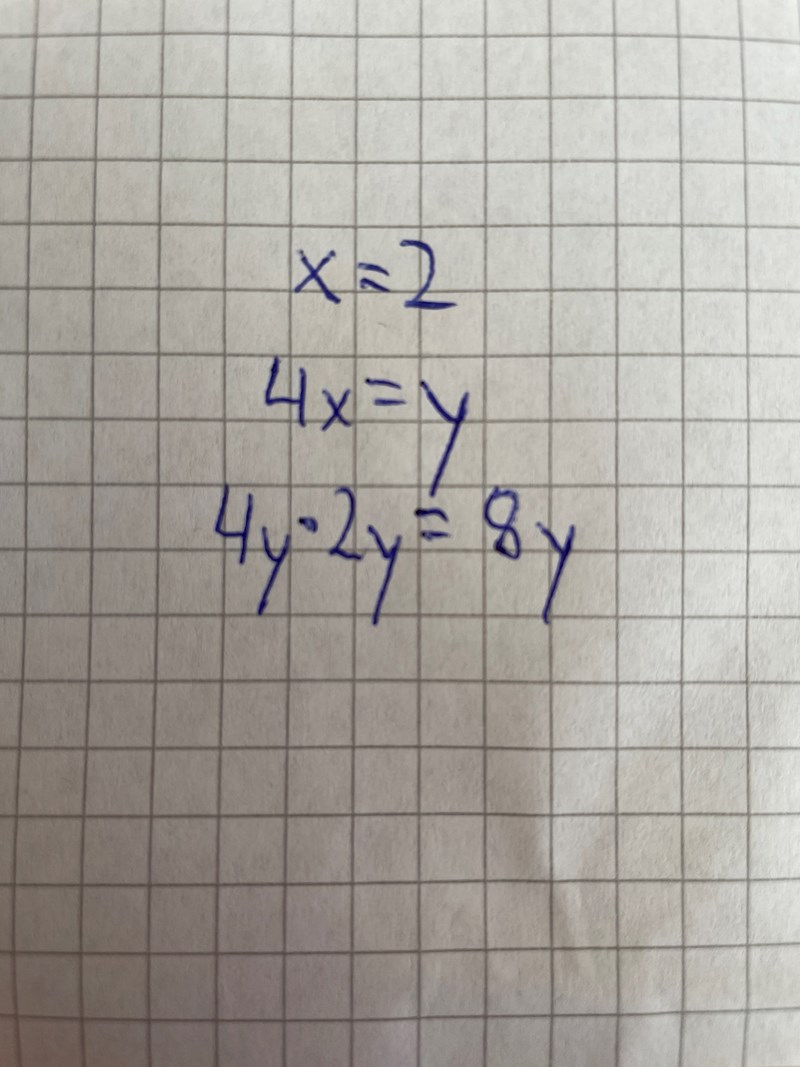 x=2
4x=y
4y·2y=8y